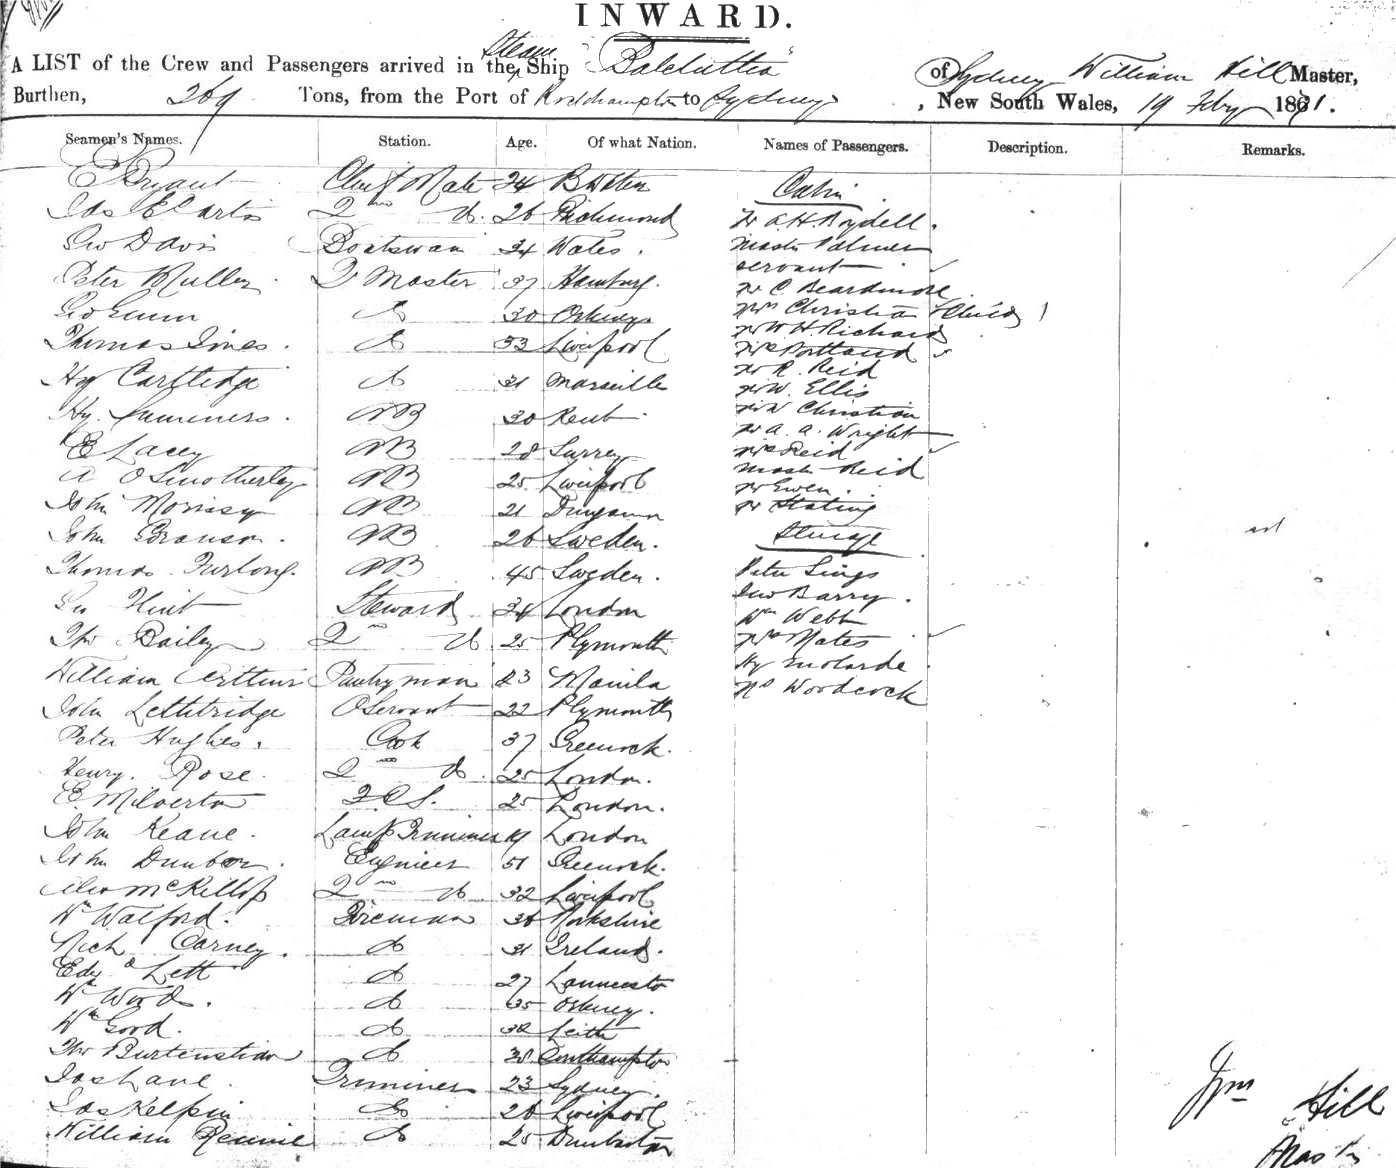 INWARD.
A LIST of the Crew and Passengers arrived in the Steam Ship Balclutha of Sydney William Hill Master,
Burthen, 269 Tons, from the Port of Rockhampton to Sydney, New South Wales, 19 Feby 1871.
Seamen's Names. Station. Age. Of what Nation. Names of Passengers. Description. Remarks.
E Bryant Chief Mate 34
Cabin
Jas E Curtis 2nd do. 26 Richmond
Mr A. H. Boydell.
Geo Davis Boatswain 34 Wales.
Master Palmer
servant
Peter Muller Qr Master 37 Hamburg.
Mr C Beardmore
Geo Gunn do 30 Orkneys
Mrs Christian & Child 1
Mr W H Richards
Thomas Jones. do 53 Liverpool
Mrs Portland
Mr R. Reid
Hy Cartledge do 31 Marseilles
Mr W. Ellis
Mr W Christian
Hy. Summers. AB 30 Kent
Mr A. A. Wright
E Lacey AB 28 Surrey
Mrs Reid
Master Reid
A O Smotherley AB 25 Liverpool
Mr Ewen.
John Morrisy AB 21
Mr Stating
John AB 26 Sweden.
Steerage
Thomas Furlong. AB 45 Sweden.
Peter Sings
Jno Barry.
Geo Flint Steward 34 London
Wm Webb
Thos Bailey 2nd do 25 Plymouth
Mrs Mates
Hy Molarde
William Arthur Pantryman 23 Manila
Mrs Woodcock
John Lethbridge O Servant 22 Plymouth
Peter Hughes. Cook 37 Greenock.
Henry. Rose. 2nd do. 25 London.
E. Milverton 25 London.
John Keane. Lamp Trimmer 19 London
John Dunbar. Engineer 51 Greenock.
Alex McKillop 2nd do 32 Liverpool
Wm Walford. Fireman 36 Yorkshire
Rich Carney. do 31 Ireland.
Edwd Lett do 27 Launceston
Wm Wood. do 35 Orkney.
Wm Good. do 32 Leith
Thos Burtenshaw do 38 Southampton
Jas Lane. Trimmer 23 Sydney.
Jas Kelpin do 26 Liverpool
William Rennie do 25 Dumbarton
Wm Hill
Master